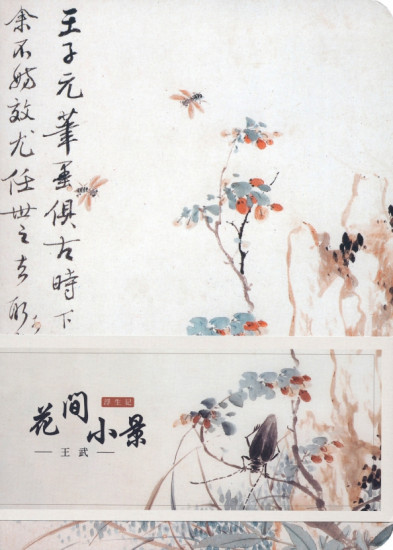 王子元筆墨俱古時下
余不妨效尤任世之去
浮生记
花间
小景
王武